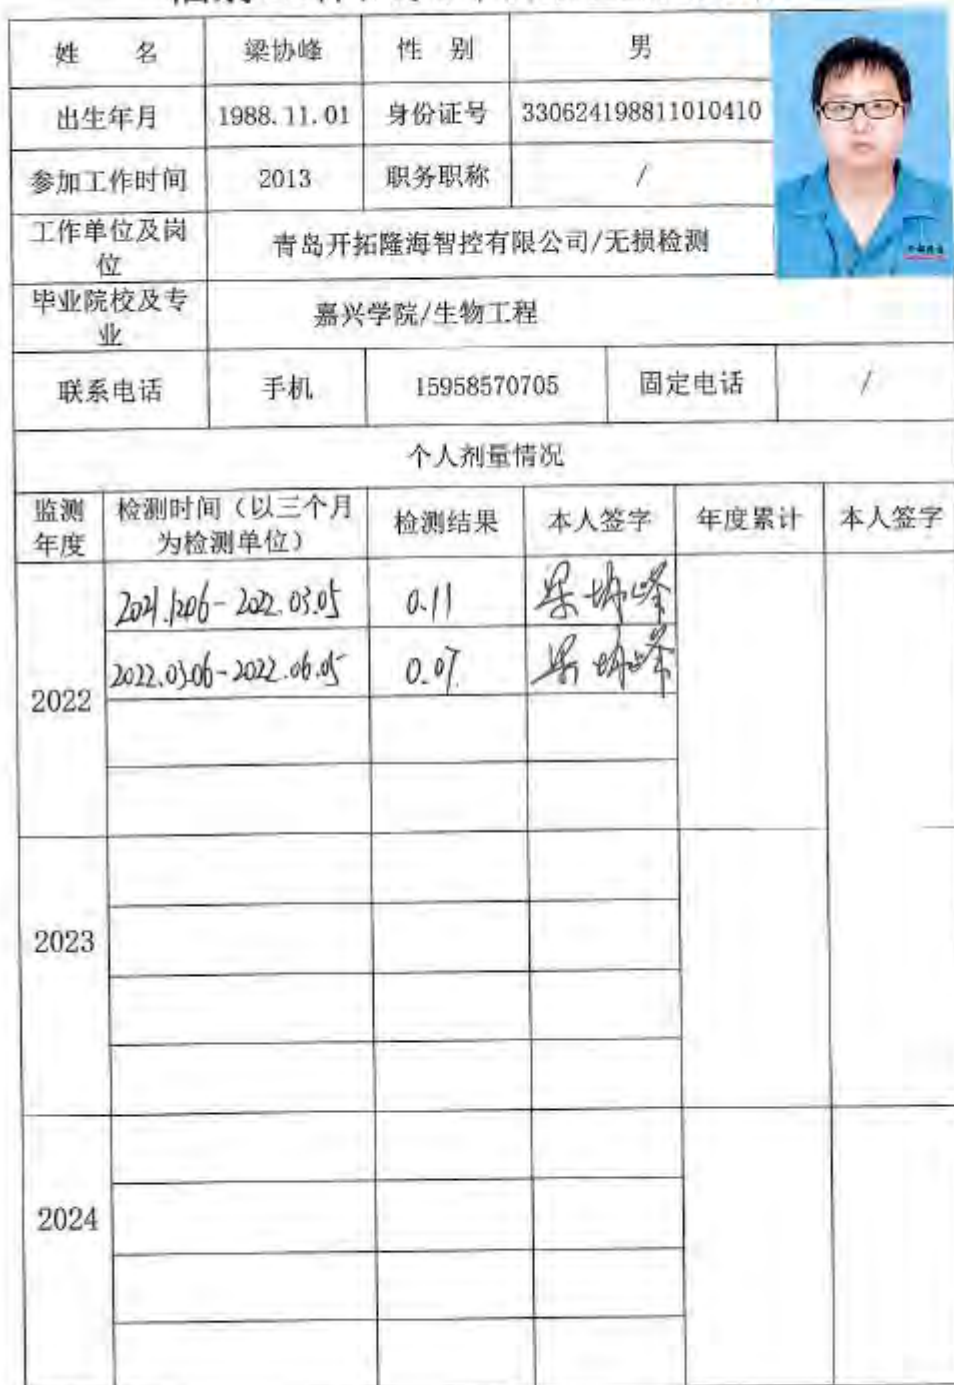 姓 名 梁协峰 性 别 男
出生年月 1988.11.01 身份证号 330624198811010410
参加工作时间 2013 职务职称 /
工作单位及岗
位
青岛开拓隆海智控有限公司/无损检测
毕业院校及专
业
嘉兴学院/生物工程
联系电话 手机 15958570705 固定电话 /
个人剂量情况
监测
年度
检测时间（以三个月
为检测单位）
检测结果 本人签字 年度累计 本人签字
2022
2021.1206-2022.03.05 0.11 梁协峰
2022.03.06-2022.06.05 0.07 梁协峰
2023
2024